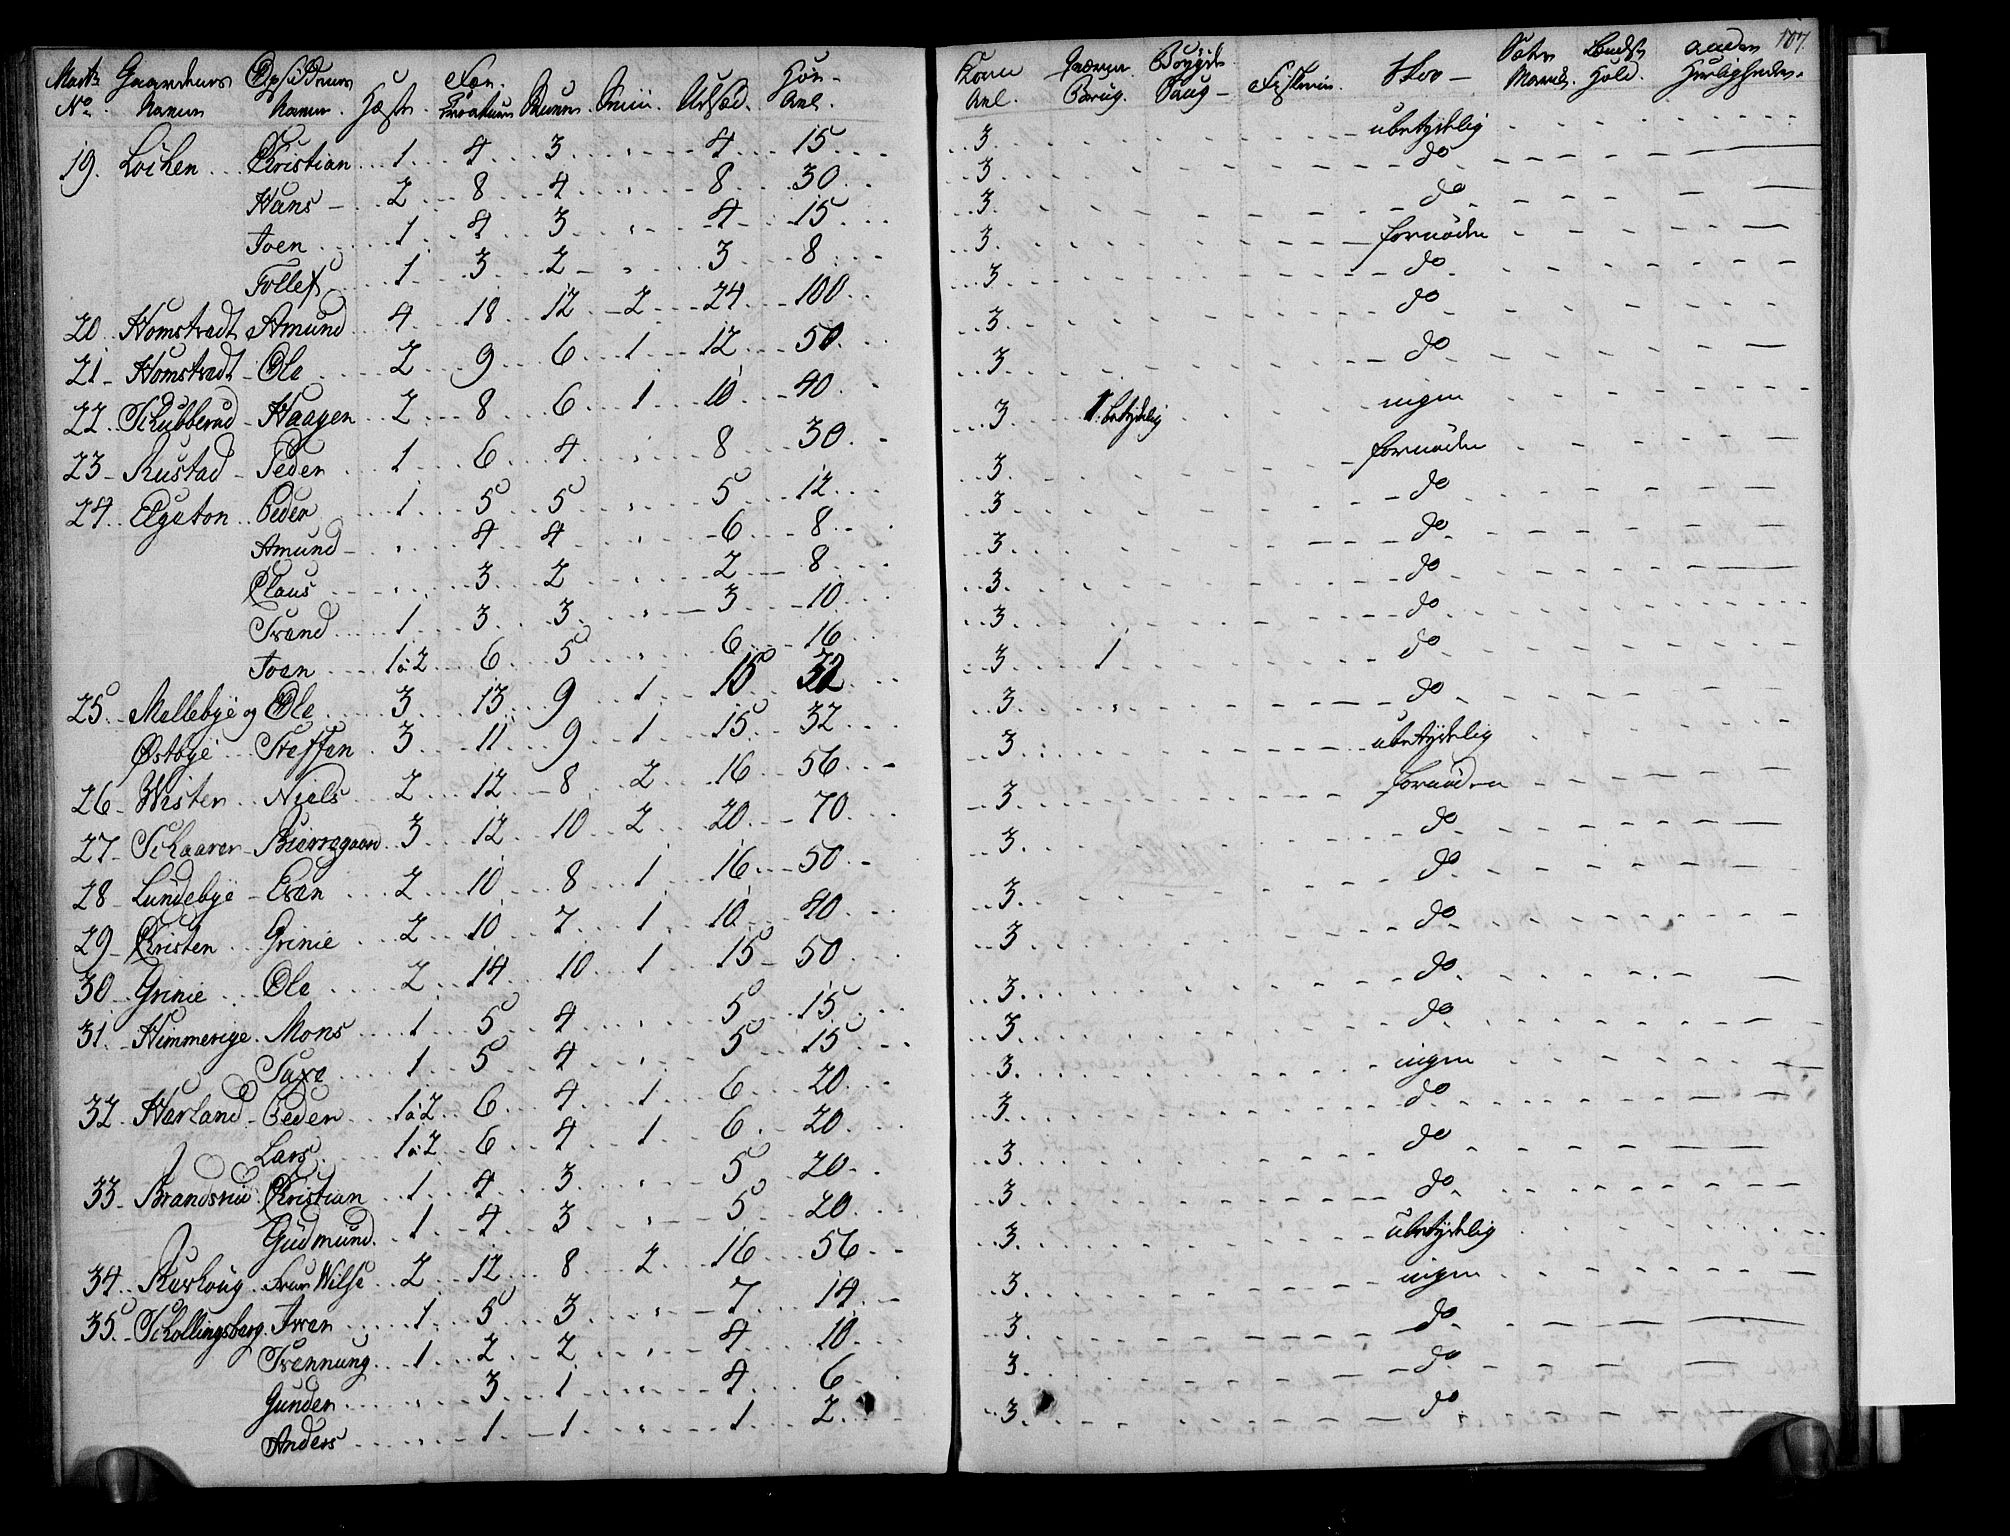 Matr: Gaardenes Opsiddernes Fæe Høe- Korn Qværne Bøygde Skov - Sæter Aaden 107.
No Navne Navne Hæste Creaturer Sviin Udsæd. Avl. Avl. Brug. Saug - Fiskerie. Havnd. Hold. Herligheder.
19. Løchen Christian 1 4 3 4 15 3 ubetydelig
Hans 2 8 4 8 30 3 do
Joen 1 4 3 4 15 3 do
Tollef 1 3 2 3 8 3 fornøden
20. Homstvedt Amund 4 18 12 2 24 100 3 do
21 Homstvedt Ole 2 9 6 1 12 50 3 do
22 Schubberud Haagen 2 8 6 1 10 40 3 do
23 Rustad Peder 1 6 4 8 30 3 1. betydelig ingen
24 Elgeton Peder 1 5 5 5 12 3 fornøden
Amund 4 4 6 8 3 do
Claus 3 2 2 8 3 do
Trond 1 3 3 3 10 3 do
Joen 1 a 2 6 5 6 16 3 do
25 Mellebye og Ole 3 13 9 1 15 32 3 1 do
Østbye Steffen 3 11 9 1 15 32 3 do
26 Wister Niels 2 12 8 2 16 56 3 ubetydelig
27 Schaarer Bierregaard 3 12 10 2 20 70 3 fornøden
28 Lundebye Even 2 10 8 1 16 50 3 do
29 Christen Grinie 2 10 7 1 10 40 3 do
30 Grinie Ole 2 14 10 1 15 50 3 do
31 Himmerige Mons 1 5 4 5 15 3 do
Saxe 1 5 4 5 15 3 do
32 Harland Peder 1 a 2 6 4 1 6 20 3 ingen
Lars 1 a 2 6 4 1 6 20 3 do
33 Brandsrüe Christian 1 4 3 5 20 3 do
Gudmund 1 4 3 5 20 3 do
34 Kurhoug Frue Wilse 2 12 8 2 16 56 3 ubetydelig
35 Schollingsberg Iver 1 5 3 7 14 3 ingen
Trennung 1 2 2 4 10 3 do
Gunder 3 1 4 6 3 do
Anders 1 1 1 2 3 do